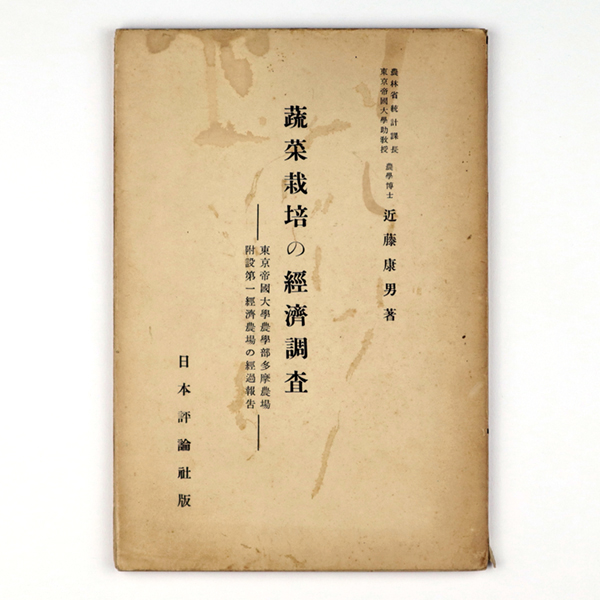 農林省統計課長
東京帝國大學助教授
農學博士 近藤康男著
蔬菜栽培の經濟調査
東京帝國大學農學部多摩農場
附設第一經濟農場の經過報告
日本評論社版